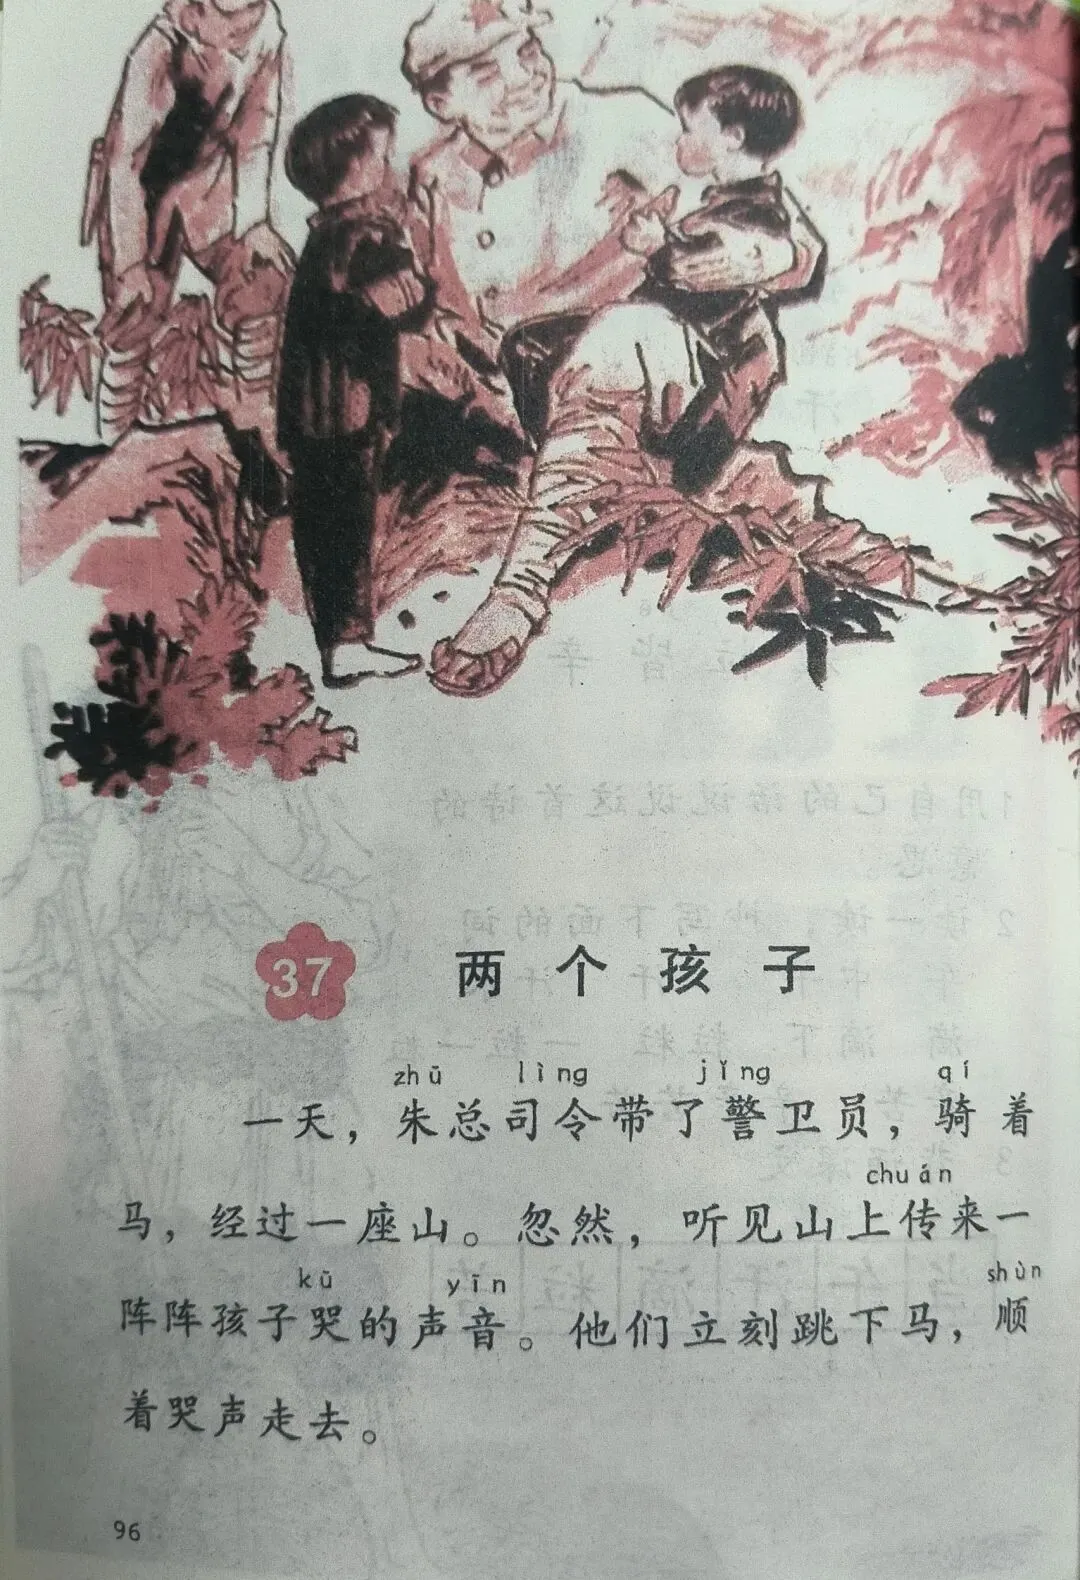 37 两个孩子
zhū lìng jǐng qí
一天，朱总司令带了警卫员，骑着
chuán
马，经过一座山。忽然，听见山上传来一
kū yīn shùn
阵阵孩子哭的声音。他们立刻跳下马，顺
着哭声走去。
96